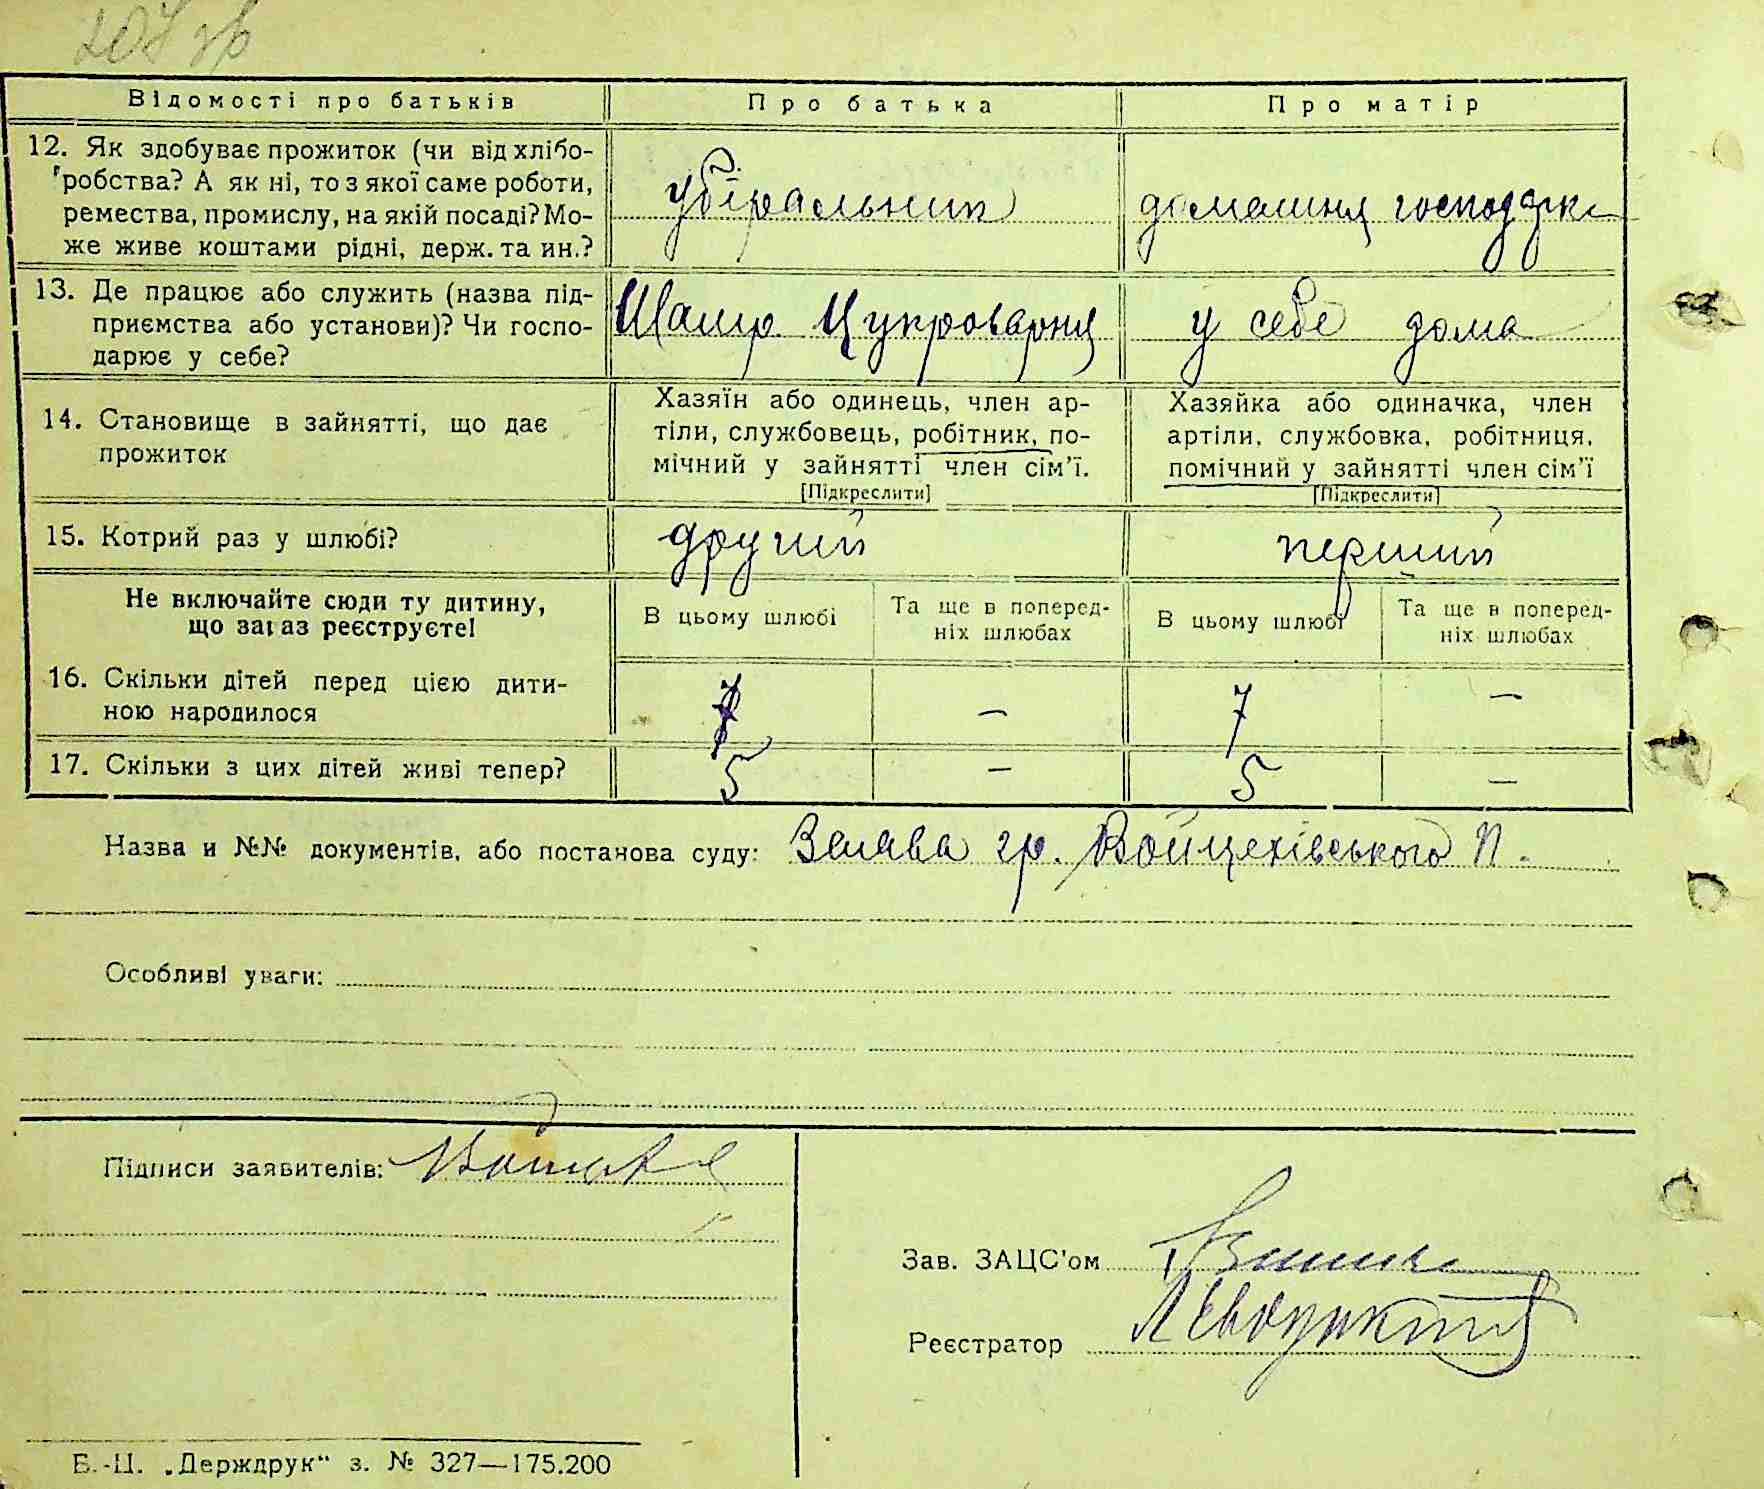 207 зв
Відомості про батьків Про батька Про матір
12. Як здобуває прожиток (чи від хлібо-
робства? А як ні, то з якої саме роботи,
ремества, промислу, на якій посаді? Мо-
же живе коштами рідні, держ. та ин.?
убіральник
домашня господарка
13. Де працює або служить (назва під-
приємства або установи)? Чи госпо-
дарює у себе?
Цукроварня
у себе дома
14. Становище в зайнятті, що дає
прожиток
Хазяїн або одинець, член ар-
тіли, службовець, робітник, по-
мічний у зайнятті член сім'ї.
[Підкреслити]
Хазяйка або одиначка, член
артіли, службовка, робітниця,
помічний у зайнятті член сім'ї
[Підкреслити]
15. Котрий раз у шлюбі? другий перший
Не включайте сюди ту дитину,
що зараз реєструєте!
В цьому шлюбі
Та ще в поперед-
ніх шлюбах
В цьому шлюбі
Та ще в поперед-
ніх шлюбах
16. Скільки дітей перед цією дити-
ною народилося
7 – 7 –
17. Скільки з цих дітей живі тепер? 5 – 5 –
Назва и №№ документів, або постанова суду: Заява гр. Войцехівського П.
Особливі уваги:
Підписи заявителів:
Зав. ЗАЦС'ом
Реєстратор
Б.-Ц. „Держдрук“ з. № 327—175.200